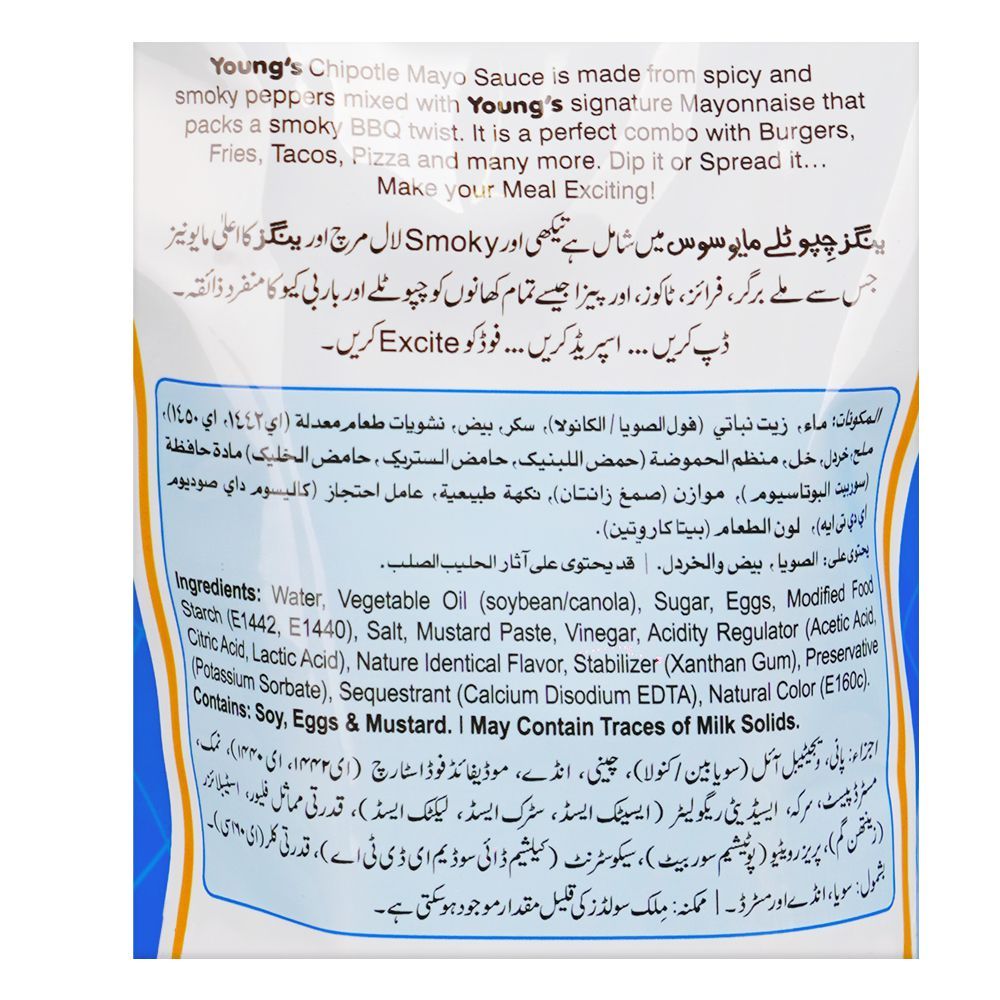 Young's Chipotle Mayo Sauce is made from spicy and
smoky peppers mixed with Young's signature Mayonnaise that
packs a smoky BBQ twist. It is a perfect combo with Burgers,
Fries, Tacos, Pizza and many more. Dip it or Spread it...
Make your Meal Exciting!
ینگز چپوٹلے مایو سوس میں شامل ہے تیکھی اور Smoky لال مرچ اور ینگز کا اعلیٰ مایونیز
جس سے ملے برگر، فرائز، ٹاکوز، اور پیزا جیسے تمام کھانوں کو چپوٹلے اور باربی کیو کا منفرد ذائقہ۔
ڈپ کریں ... اسپریڈ کریں ... فوڈ کو Excite کریں۔
المكونات: ماء، زيت نباتي (فول الصويا / الكانولا)، سكر، بيض، نشويات طعام معدلة (اي ١٤٤٢، اي ١٤٥٠)،
ملح، خردل، خل، منظم الحموضة (حمض اللبنيك، حامض الستريك، حامض الخليك) مادة حافظة
(سوربيت البوتاسيوم)، موازن (صمغ زانتان)، نكهة طبيعية، عامل احتجاز (كاليسوم داي صوديوم
اي دي تي ايه)، لون الطعام (بيتا كاروتين).
يحتوى على: الصويا، بيض والخردل. | قد يحتوى على آثار الحليب الصلب.
Ingredients: Water, Vegetable Oil (soybean/canola), Sugar, Eggs, Modified Food
Starch (E1442, E1440), Salt, Mustard Paste, Vinegar, Acidity Regulator (Acetic Acid,
Citric Acid, Lactic Acid), Nature Identical Flavor, Stabilizer (Xanthan Gum), Preservative
(Potassium Sorbate), Sequestrant (Calcium Disodium EDTA), Natural Color (E160c).
Contains: Soy, Eggs & Mustard. | May Contain Traces of Milk Solids.
اجزاء: پانی، ویجیٹیبل آئل (سویا بین / کنولا)، چینی، انڈے، موڈیفائڈ فوڈ اسٹارچ (ای ۱۴۴۲، ای ۱۴۴۰)، نمک،
مسٹرڈ پیسٹ، سرکہ، ایسڈیٹی ریگولیٹر (ایسیٹک ایسڈ، سٹرک ایسڈ، لیکٹک ایسڈ)، قدرتی مماثل فلیور، اسٹیبلائزر
(زینتھن گم)، پریزرویٹیو (پوٹیشیم سوربیٹ)، سیکوسٹرنٹ (کیلشیم ڈائی سوڈیم ای ڈی ٹی اے)، قدرتی کلر (ای ۱۶۰سی)۔
بشمول: سویا، انڈے اور مسٹرڈ۔ | ممکنہ: مِلک سولڈز کی قلیل مقدار موجود ہو سکتی ہے۔